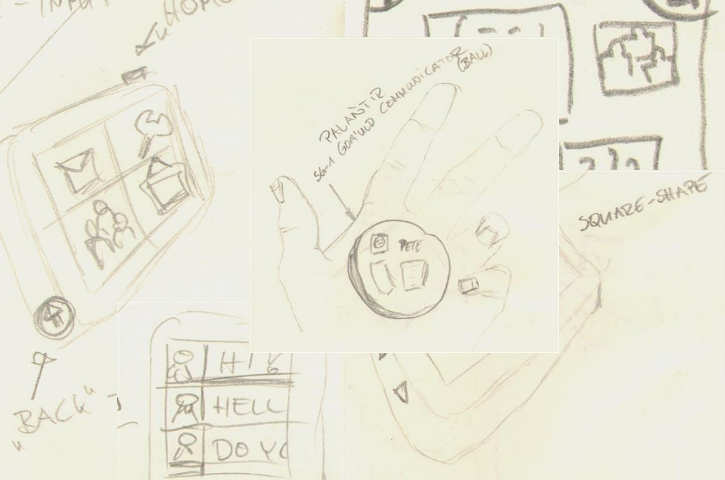 -INPUT
"HOME
PALANTIR
SG-1 GOA'ULD COMMUNICATOR
(BALL)
PETE
SQUARE-SHAPE
HI
HELL
DO YO
"BACK"